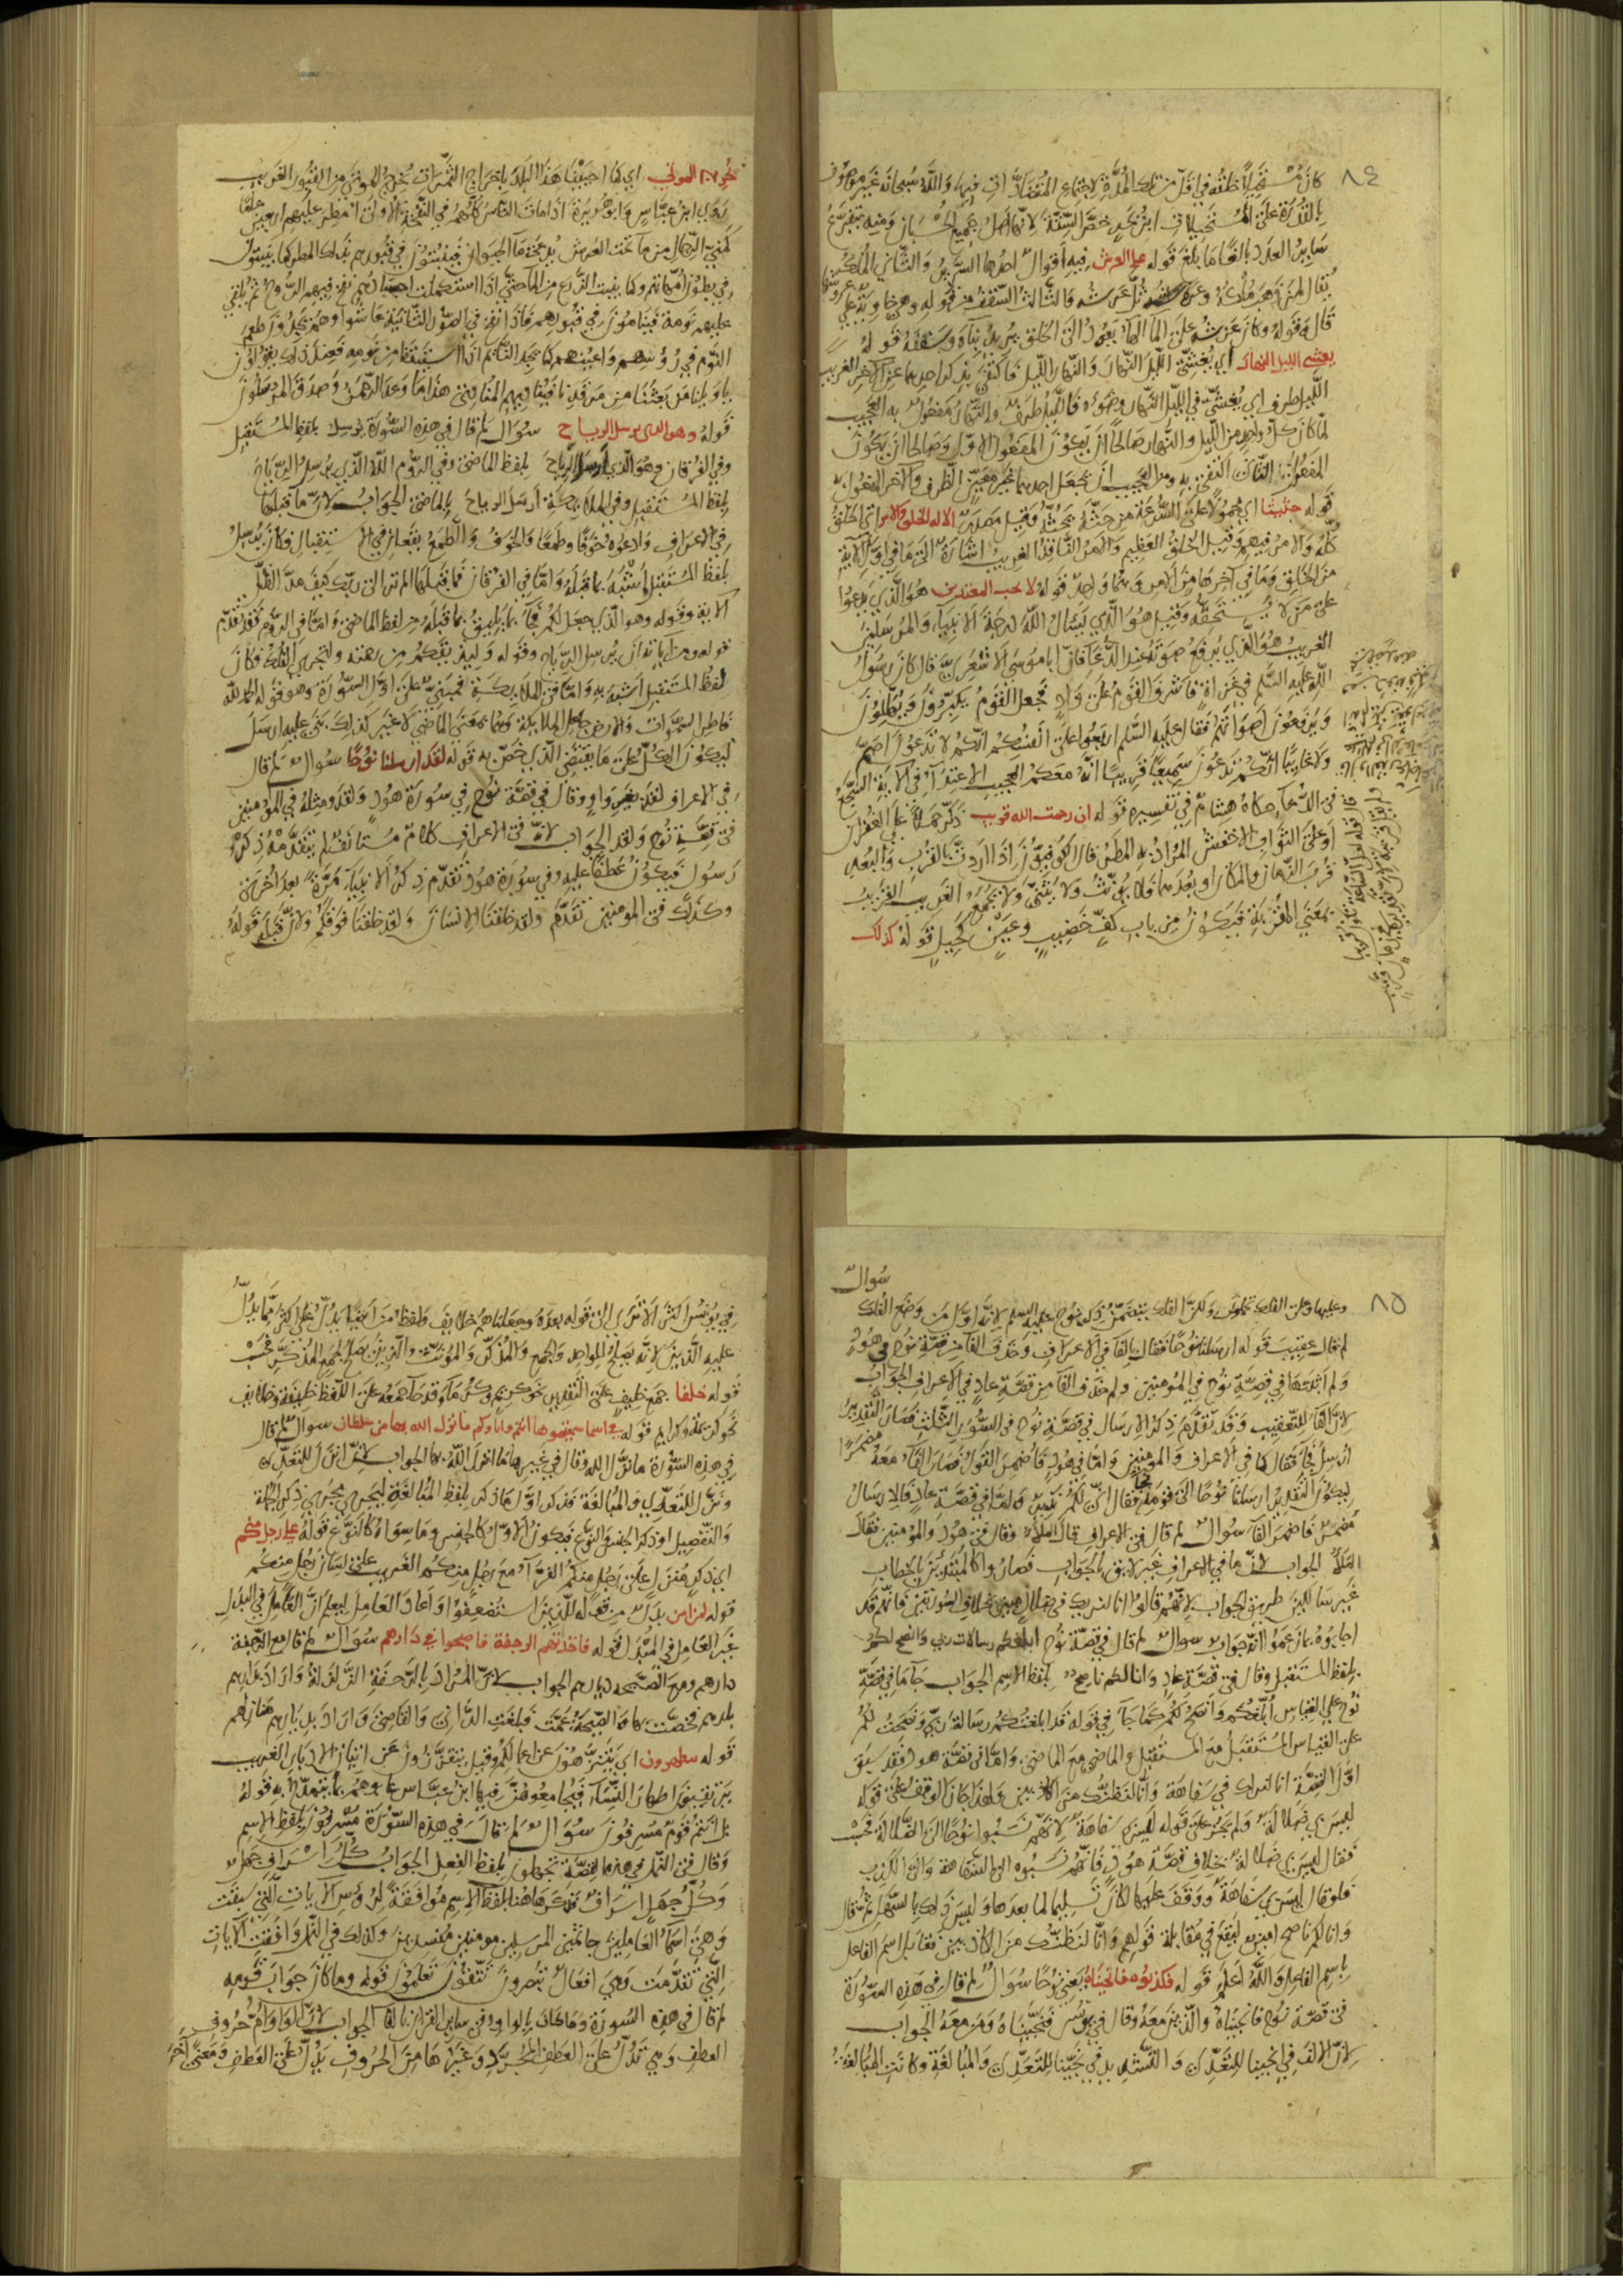 ٨٤
كان مستحيلا خلقه في اقل من تلك المدة لاجتماع المتضادات فيها والله سبحانه غير موصوف
بالقدرة على المستحيلات ابن بحر خص الستة لانها اصل لجميع الحساب ومنه يتفرع
ساير العدد بالغا ما بلغ قوله على العرش فيه اقوال احدها السرير والثاني الملك
يقال لمن وهى ملكه ثل عرشه والثالث السقف من قوله وهي خاوية على عروشها
قال وقوله وكان عرشه على الماء الهاء يعود الى الخلق يريد بناه وسقفه قوله
يغشى الليل النهار اي يغشي الليل النهار والنهار الليل فاكتفى بذكر احدهما عن الاخر الغريب
الليل ظرف اي يغشي في الليل النهار وضوءه فالليل ظرف والنهار مفعول به العجيب
لما كان كل واحد من الليل والنهار صالحا ان يكون المفعول الاول وصالحا ان يكون
المفعول الثاني اكتفى به ومن العجيب ان يجعل احدهما بمعنى الظرف والاخر المفعول به
قوله حثيثا اي محمولا على السرعة من حثه يحثه وقيل الا له الخلق والامر اي الخلق
كله والامر فيهم وقيل الخلق العظيم والامر النافذ الغريب اشارة الى ما في اول الاية
من الخلق وما في آخرها من الامر وهما واحد قوله لا يحب المعتدين هو الذي يدعوا
على من لا يستحقه وقيل هو الذي يسأل الله درجة الانبياء والمرسلين
الغريب هو الذي يرفع صوته عند الدعا فان ابا موسى الاشعري قال كان رسول
الله عليه السلم في غزاة فاشرف القوم على واد فجعل القوم يكبرون ويهللون
ويرفعون اصواتهم فقال عليه السلم اربعوا على انفسكم انكم لا تدعون اصم
ولا غايبا انكم تدعون سميعا قريبا انه معكم العجيب الاعتداء في الاية السجع
في الدعاء حكاه هشام في تفسيره قوله ان رحمت الله قريب ذكر حملا على الغفران
او على الثواب الاخفش المراد به المطر قال الكوفيون اذا اردت بالقرب والبعد
قرب الزمان والمكان او بعدهما فلا يؤنث ولا يثنى ولا يجمع الغريب القريب
بمعنى المقربة فيكون من باب كف خضيب وعين كحيل قوله كذلك
نخرج الموتى اي كما احيينا هذا البلد باخراج الثمرات نخرج الموتى من القبور الغريب
روى ابن عباس وابو هريرة اذا مات الناس كلهم في النفخة الاولى امطر عليهم اربعين عاما
كمني الرجال من ماء تحت العرش يدعى ماء الحيوان فينبتون في قبورهم بذلك المطر كما ينبتون
في بطون امهاتهم وكما ينبت الزرع من الماء حتى اذا استكملت اجسادهم نفخ فيهم الروح ثم يلقي
عليهم نومة فينامون في قبورهم فاذا نفخ في الصور الثانية عاشوا وهم يجدون طعم
النوم في رؤسهم واعينهم كما يجد النايم اذا استيقظ من نومه فعند ذلك يقولون
يا ويلنا من بعثنا من مرقدنا فيناديهم المنادي هذا ما وعد الرحمن وصدق المرسلون
قوله وهو الذي يرسل الرياح سؤال لم قال في هذه السورة يرسل بلفظ المستقبل
وفي الفرقان وهو الذي ارسل الرياح بلفظ الماضي وفي الروم الله الذي يرسل الرياح
بلفظ المستقبل وفي الملايكة ارسل الرياح بالماضي الجواب لان ما قبلها
في الاعراف وادعوه خوفا وطمعا والخوف والطمع يقعان في الاستقبال فكان يرسل
بلفظ المستقبل اشبه بما قبله واما في الفرقان فما قبلها الم تر الى ربك كيف مد الظل
الاية وقوله وهو الذي جعل لكم فكان يليق بما قبله لفظ الماضي واما في الروم فقد تقدم
قوله ومن آياته ان يرسل الرياح وقوله وليذيقكم من رحمته ولتجري الفلك فكان
لفظ المستقبل اشبه به واما في الملايكة فمبني على اول السورة وهو قوله الحمد لله
فاطر السموات والارض جاعل الملايكة وهما بمعنى الماضي لا غير كذلك بنى عليه ارسل
ليكون الكل على ما يقتضي الذي خص به قوله لقد ارسلنا نوحا سؤال لم قال
في الاعراف لقد بغير واو وقال في قصة نوح في سورة هود ولقد ومثله في المؤمنين
في قصة نوح ولقد الجواب لانه في الاعراف كلام مستانف لم يتقدمه ذكر
رسول فيكون عطفا عليه وفي سورة هود تقدم ذكر الانبياء مرة بعد اخرى
وكذلك في المؤمنين تقدم ولقد خلقنا الانسان ولقد خلقنا فوقكم ولان قبله قوله
٨٥
سؤال
وعليها وعلى الفلك تحملون وذكر الفلك يتضمن ذكر نوح عليه السلم لانه اول من وضع الفلك
لم قال عقيب قوله ارسلنا نوحا فقال بالفاء في الاعراف وحذف الفاء من قصة نوح في هود
ولم اثبتها في قصة نوح في المؤمنين ولم حذف الفاء من قصة عاد في الاعراف الجواب
لان الفاء للتعقيب وقد تقدم ذكر الارسال في قصة نوح في السور الثلث فصار التقدير
ارسل فجاء فقال كما في الاعراف والمؤمنين واما في هود فاضمر القول فصار الفاء معه مضمرا
ليكون التقدير ارسلنا نوحا الى قومه فقال اني لكم نذير واما في قصة عاد فالارسال
مضمر فاضمر الفاء سؤال لم قال في الاعراف قال الملا وقال في هود والمؤمنين فقال
الملا الجواب لان ما في الاعراف غير لايق بالجواب فصاروا كالمبتديين بالخطاب
غير سالكين طريق الجواب لانهم قالوا انا لنريك في ضلال مبين بخلاف السورتين فانهم قد
اجابوه بما زعموا انه جواب سؤال لم قال في قصة نوح ابلغكم رسالات ربي وانصح لكم
بلفظ المستقبل وقال في قصة عاد وانا لكم ناصح بلفظ الاسم الجواب جاء ما في قصة
نوح على القياس ابلغكم وانصح لكم كما جاء في قوله قد ابلغتكم رسالة ربي ونصحت لكم
على القياس المستقبل مع المستقبل والماضي مع الماضي واما في قصة هود فقد سبق
اول القصة انا لنراك في سفاهة وانا لنظنك من الكاذبين ولهذا كان الوقف على قوله
ليس بي ضلالة ولم يجز على قوله ليس بي سفاهة لانهم نسبوا نوحا الى الضلالة فحسب
فقال ليس بي ضلالة بخلاف قصة هود فانهم نسبوه الى السفاهة والى الكذب
فلو قال ليس بي سفاهة ووقف عليها لكان تسليما لما بعدها وليس ذلك بالسهل ثم قال
وانا لكم ناصح امين ليقع في مقابلة قولهم وانا لنظنك من الكاذبين فقابل اسم الفاعل
باسم الفاعل والله اعلم قوله فكذبوه فانجيناه يعني نوحا سؤال لم قال في هذه السورة
في قصة نوح فانجيناه والذين معه وقال في يونس فنجيناه ومن معه الجواب
لان الالف في انجينا للتعدي والتشديد في نجينا للتعدي والمبالغة وكانت المبالغة
في يونس اكثر الا ترى الى قوله بعده وجعلناهم خلايف ولفظ من ايضا يدل على اكثر مما يدل
عليه الذين لانه يصلح للواحد والجمع والمذكر والمؤنث والذين يصلح لجمع المذكر فحسب
قوله خلفا جمع خليف على التقدير نحو كريم وكرما وقد جاء جمعه على اللفظ خليفة وخلايف
نحو كريمة وكرايم قوله في اسما سميتموها انتم واباوكم ما نزل الله بها من سلطان سؤال لم قال
في هذه السورة ما نزل الله وقال في غيرها ما انزل الله بها الجواب لان انزل للتعدي
ونزل للتعدي والمبالغة فذكر اول ما ذكر بلفظ المبالغة ليجري مجرى ذكر الجملة
والتفصيل او ذكر الجنس والنوع فيكون الاول كالجنس وما سواه كالنوع قوله على رجل منكم
اي ذكر منزل على رجل منكم الفراء مع رجل منكم الغريب على لسان رجل منكم
قوله لمن امن بدل من قوله للذين استضعفوا واعاد العامل ليعلم ان العامل في البدل
غير العامل في المبدل قوله فاخذتهم الرجفة فاصبحوا في دارهم سؤال لم قال مع الرجفة
دارهم ومع الصيحة ديارهم الجواب لان المراد بالرجفة الزلزلة واراد بدارهم
بلدهم فخصت بها والصيحة عمت فبلغت الداني والقاصي واراد بديارهم منازلهم
قوله يتطهرون اي يتنزهون عن اعمالكم وقيل يتقذرون عن اتيان الادبار الغريب
يترقبون اطهار النساء فيجامعوهن فيها ابن عباس عابوهم بما يتمدح به قوله
بل انتم قوم مسرفون سؤال لم قال في هذه السورة مسرفون بلفظ الاسم
وقال في النمل في هذه القصة تجهلون بلفظ الفعل الجواب كل اسراف جهل
وكل جهل اسراف فذكرها هنا بلفظ الاسم موافقة لرؤس الايات التي سبقت
وهي اسماء العالمين جاثمين المرسلين مومنين مفسدين وكذلك في النمل وافقت الايات
التي تقدمت وهي افعال تبصرون تتقون تعلمون قوله وما كان جواب قومه
لم قال في هذه السورة وما كان بالواو وفي ساير القرآن بالفاء الجواب لان الواو ام حروف
العطف وهي تدل على العطف المجرد وغيرها من الحروف يدل على العطف ومعنى آخر